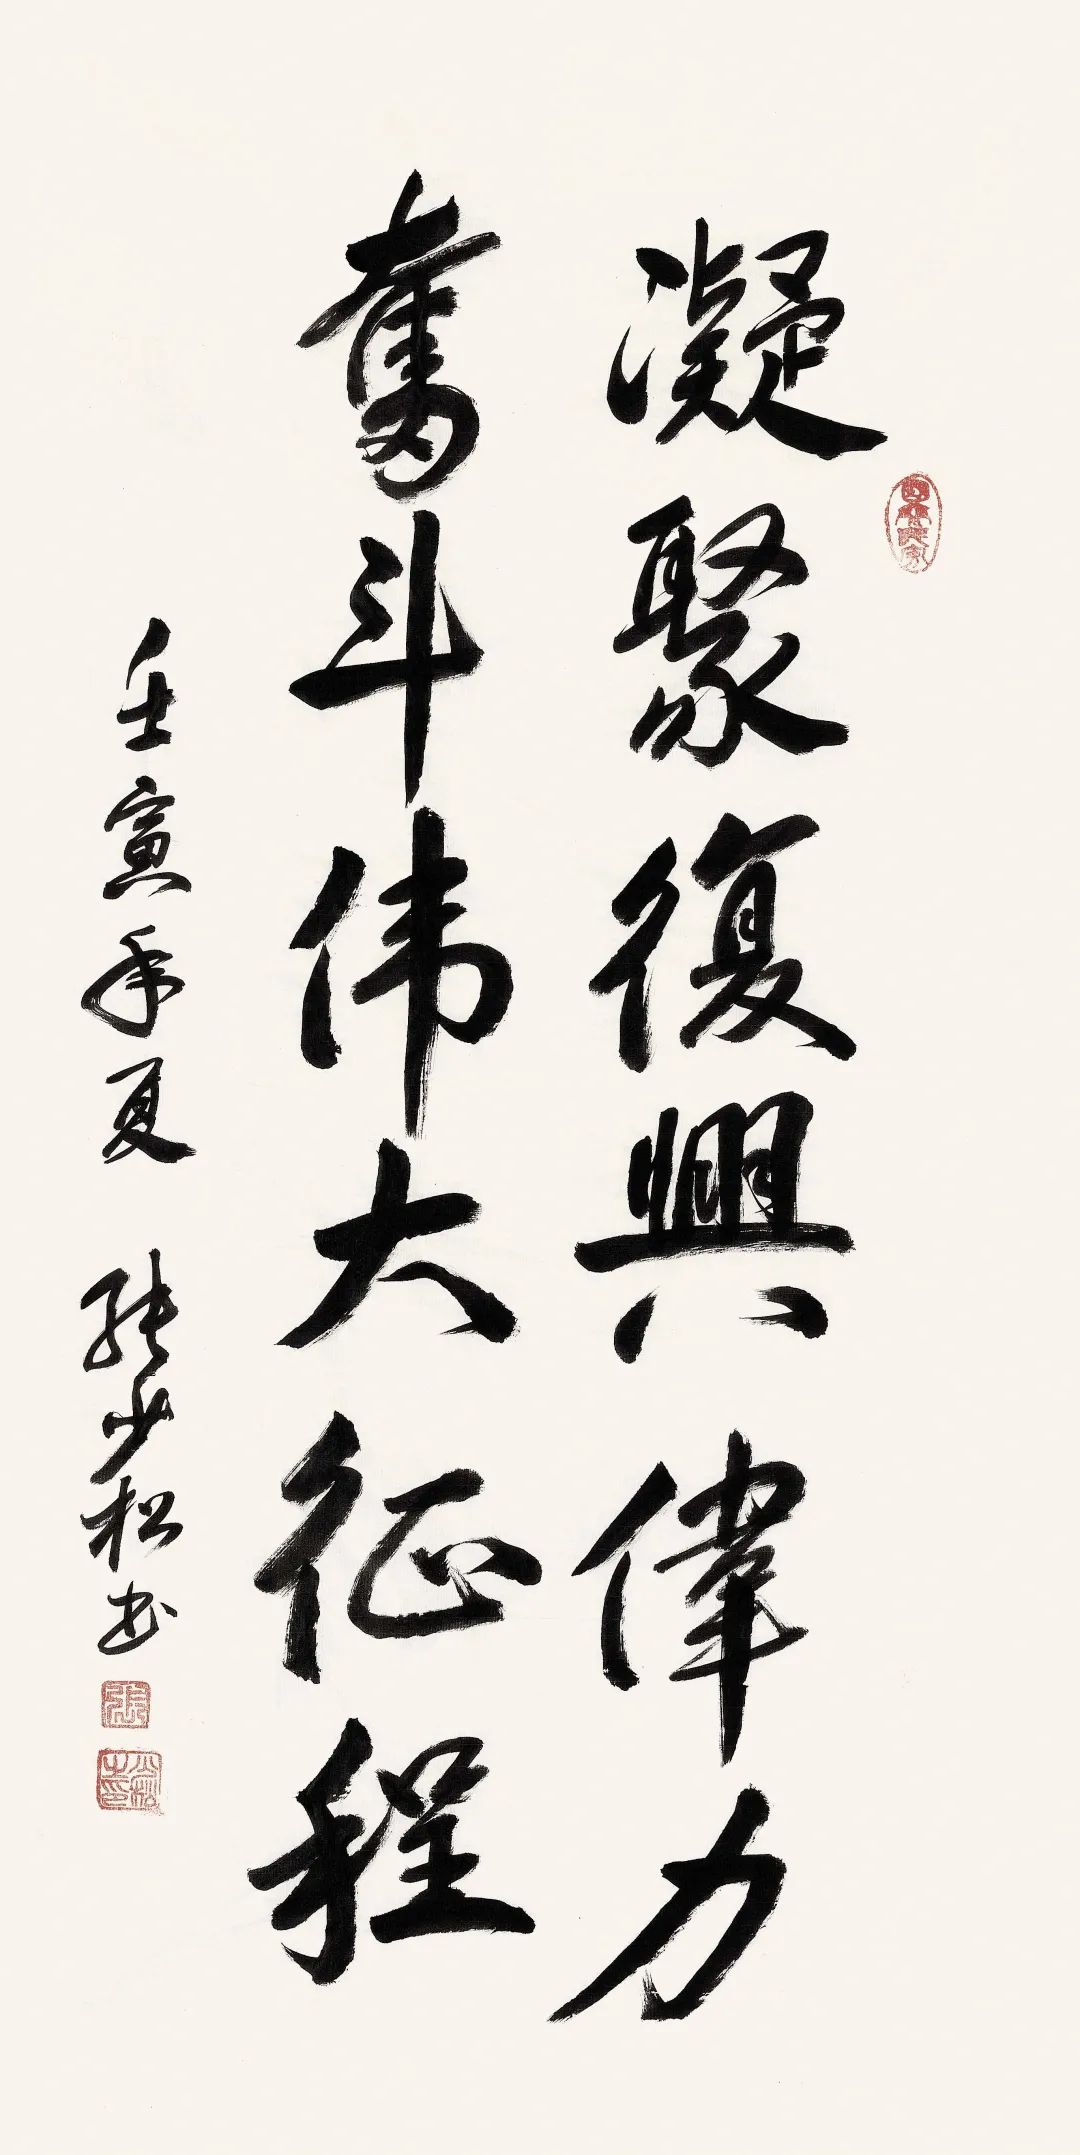 凝聚復興偉力
奮斗伟大征程
壬寅年夏 張少松书